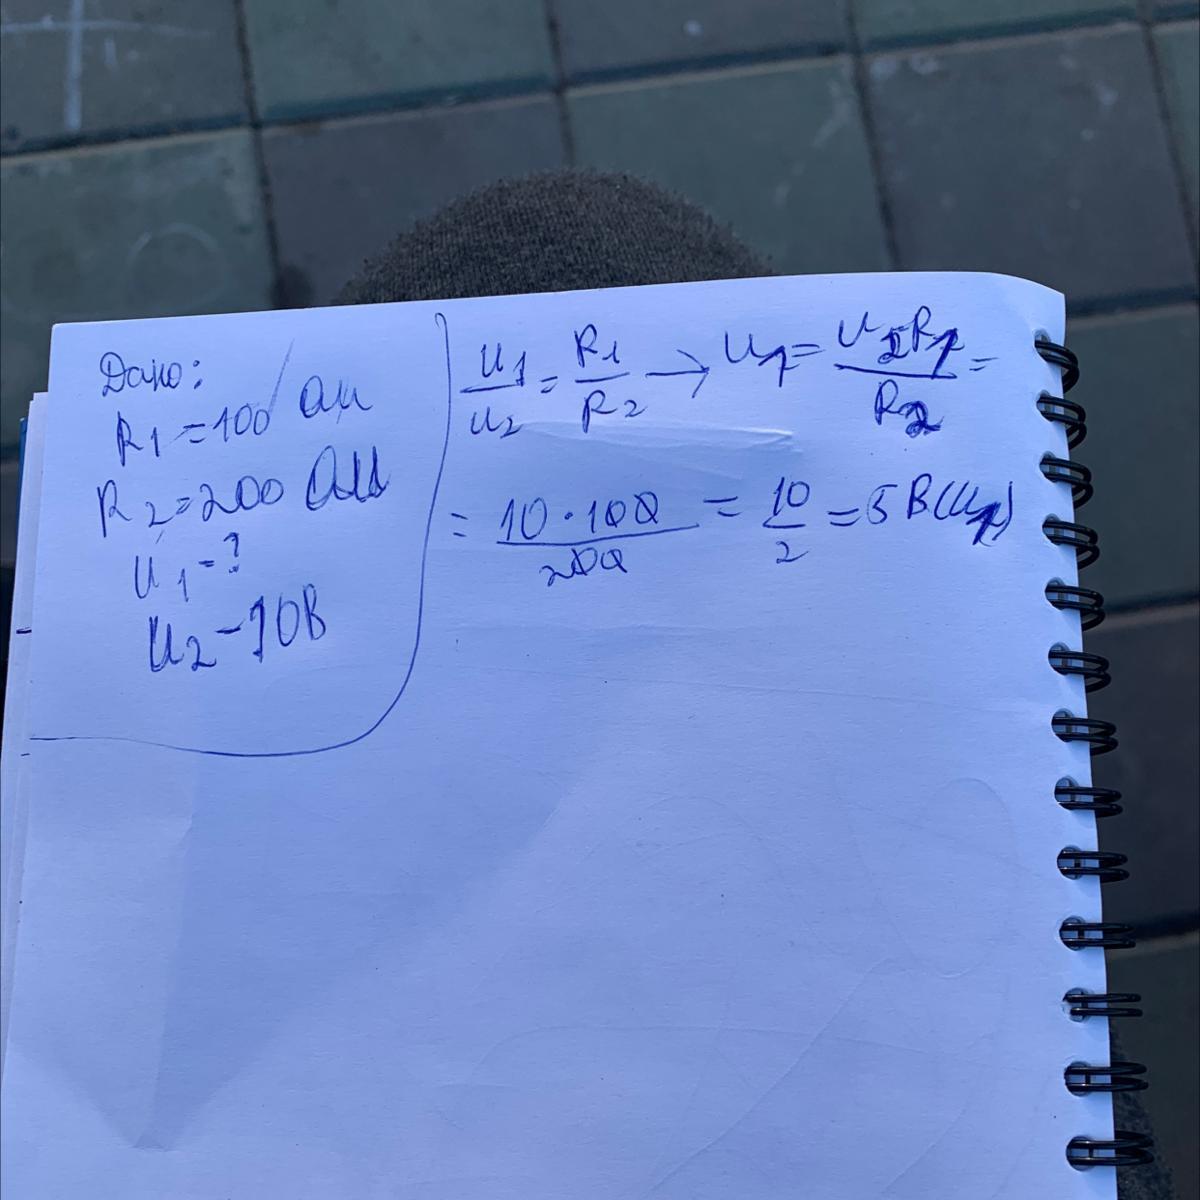 Дано:
R1 = 100 Ом
R2 = 200 Ом
U1 - ?
U2 - 10В
U1/U2 = R1/R2 → U1 = U2R1/R2 =
= 10 · 100/200 = 10/2 = 5 В (U1)